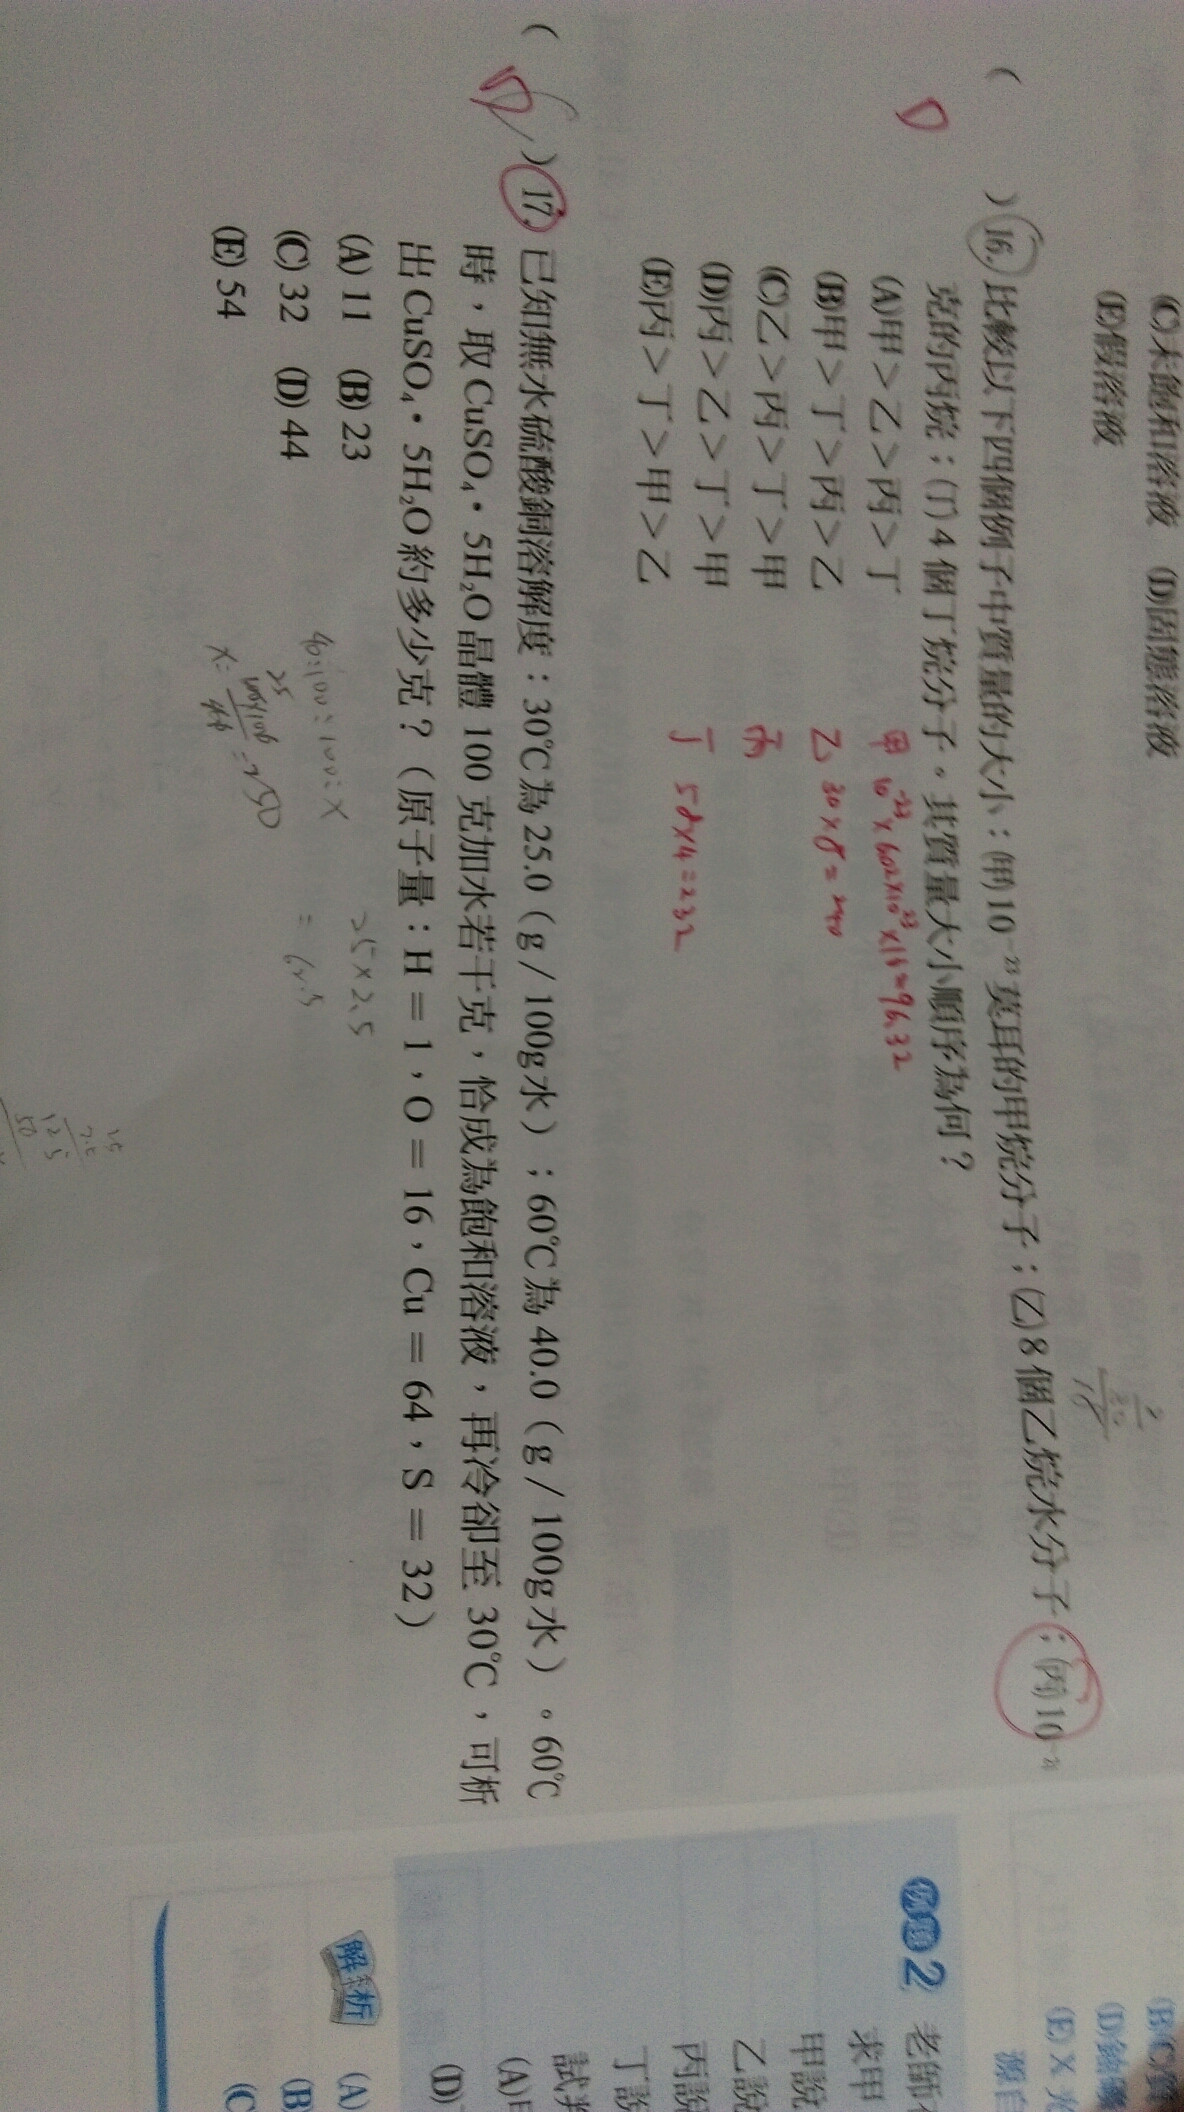 (C)未飽和溶液 (D)固態溶液
(E)假溶液
( D ) 16. 比較以下四個例子中質量的大小：(甲)10⁻²³莫耳的甲烷分子；(乙)8個乙烷分子；(丙)10⁻²¹
克的丙烷；(丁)4個丁烷分子。其質量大小順序為何？
(A)甲＞乙＞丙＞丁
(B)甲＞丁＞丙＞乙
(C)乙＞丙＞丁＞甲
(D)丙＞乙＞丁＞甲
(E)丙＞丁＞甲＞乙
甲 10⁻²³×6.02×10²³×16=96.32
乙 30×8=240
丙
丁 58×4=232
( D ) 17. 已知無水硫酸銅溶解度：30℃為25.0（g / 100g水）；60℃為40.0（g / 100g水）。60℃
時，取CuSO₄・5H₂O晶體100克加水若干克，恰成為飽和溶液，再冷卻至30℃，可析
出CuSO₄・5H₂O約多少克？（原子量：H＝1，O＝16，Cu＝64，S＝32）
(A) 11 (B) 23
(C) 32 (D) 44
(E) 54
40:100=100:X
=250
25×2.5
= 62.5
例題2 老師
求甲
甲說
乙說
丙說
丁說
(A)
(D)
解析 (A)
(B)
(C
(E) X
源自